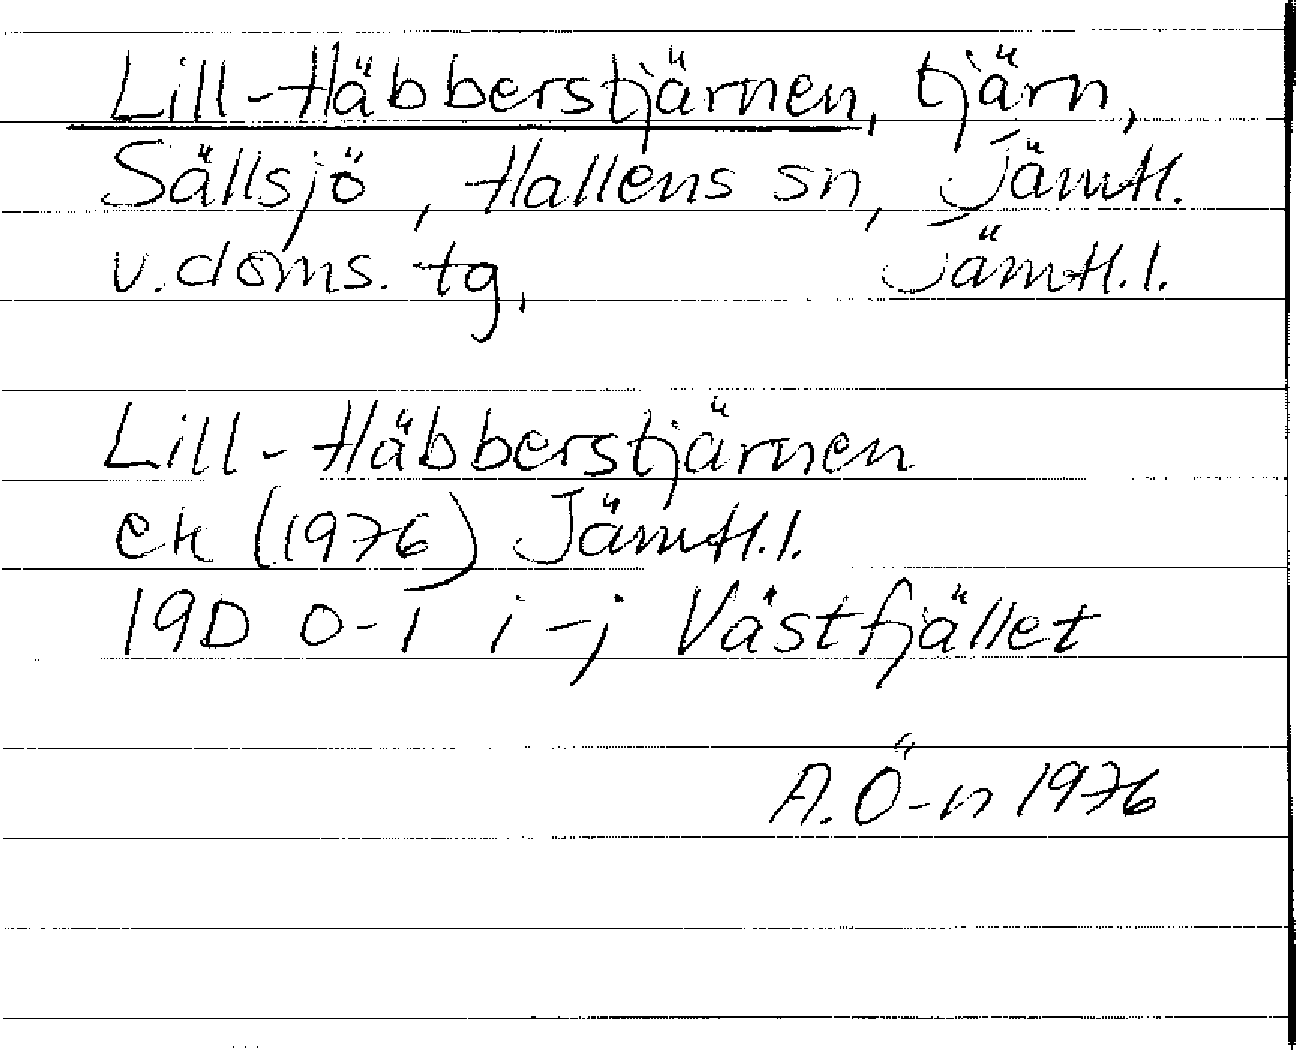 Lill-Häbberstjärnen, tjärn,
Sällsjö, Hallens sn, Jämtl.
v. doms. tg, Jämtl.l.
Lill-Häbberstjärnen
ek (1976) Jämtl.l.
19D 0-1 i-j Västfjället
A.Ö-n 1976